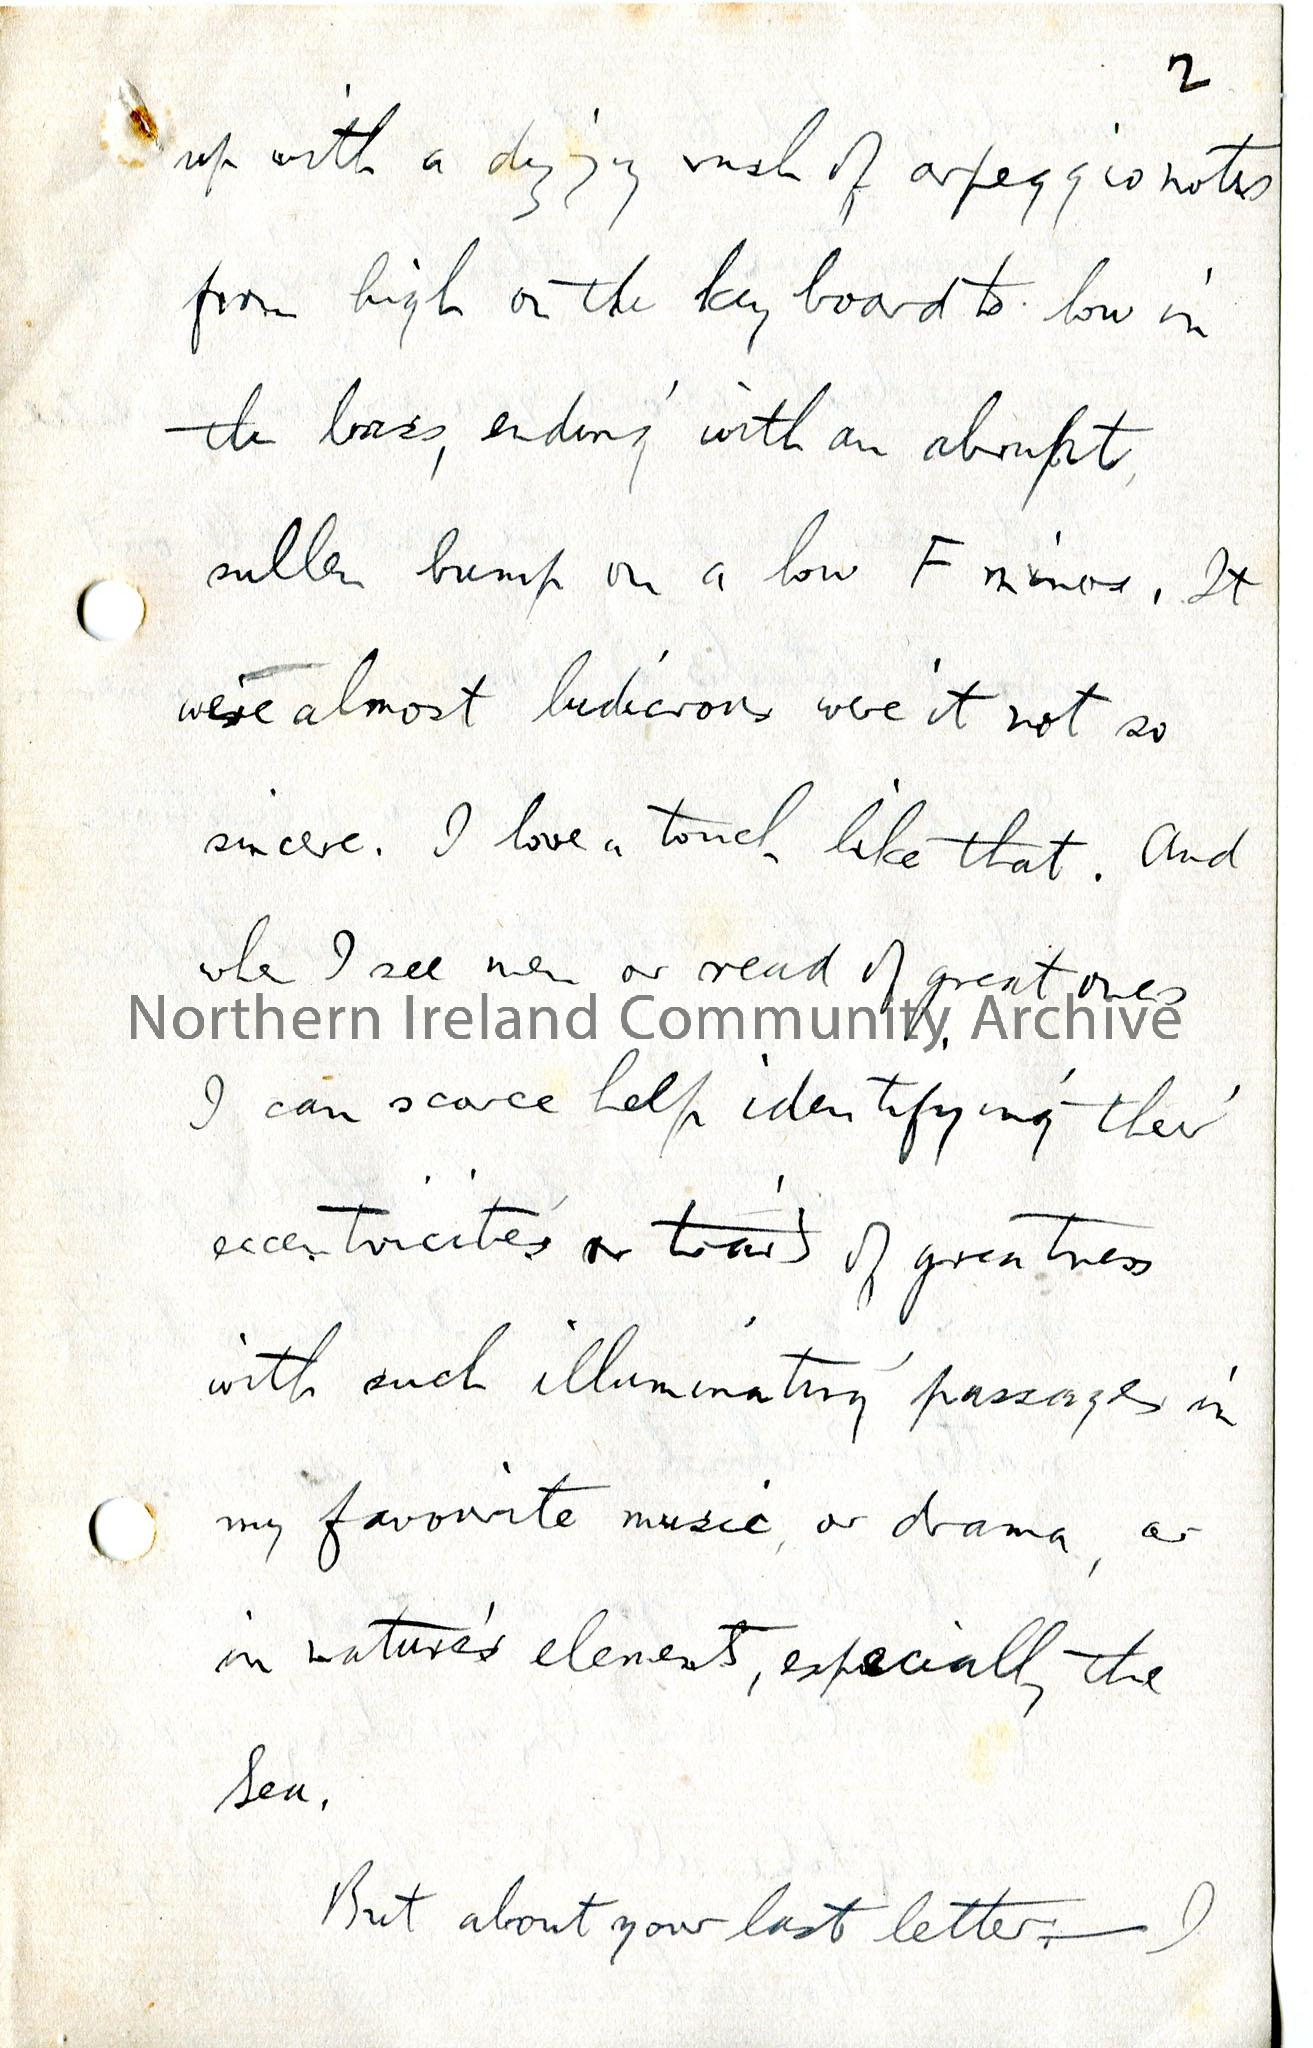 2
up with a dizzy rush of arpeggio notes
from high on the keyboard to low in
the bass, ending with an abrupt,
sullen bump on a low F minor. It
were almost ludicrous were it not so
sincere. I love a touch like that. And
when I see men or read of great ones
Northern Ireland Community Archive
I can scarce help identifying their
eccentricities or traits of greatness
with such illuminating passages in
my favourite music, or drama, or
in nature's elements, especially the
Sea.
But about your last letter:— I